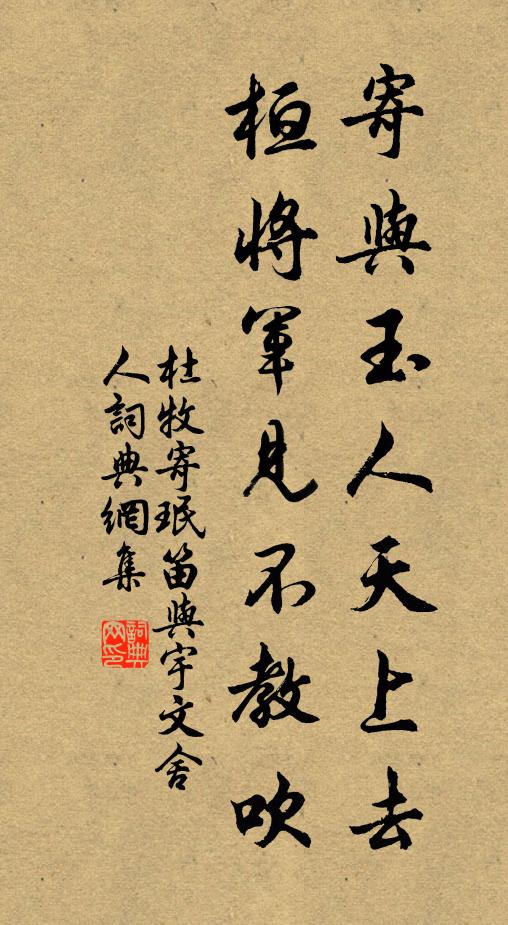 寄與玉人天上去
桓將軍見不教吹
杜牧寄珉笛與宇文舍
人詞典網集
詞典
網印